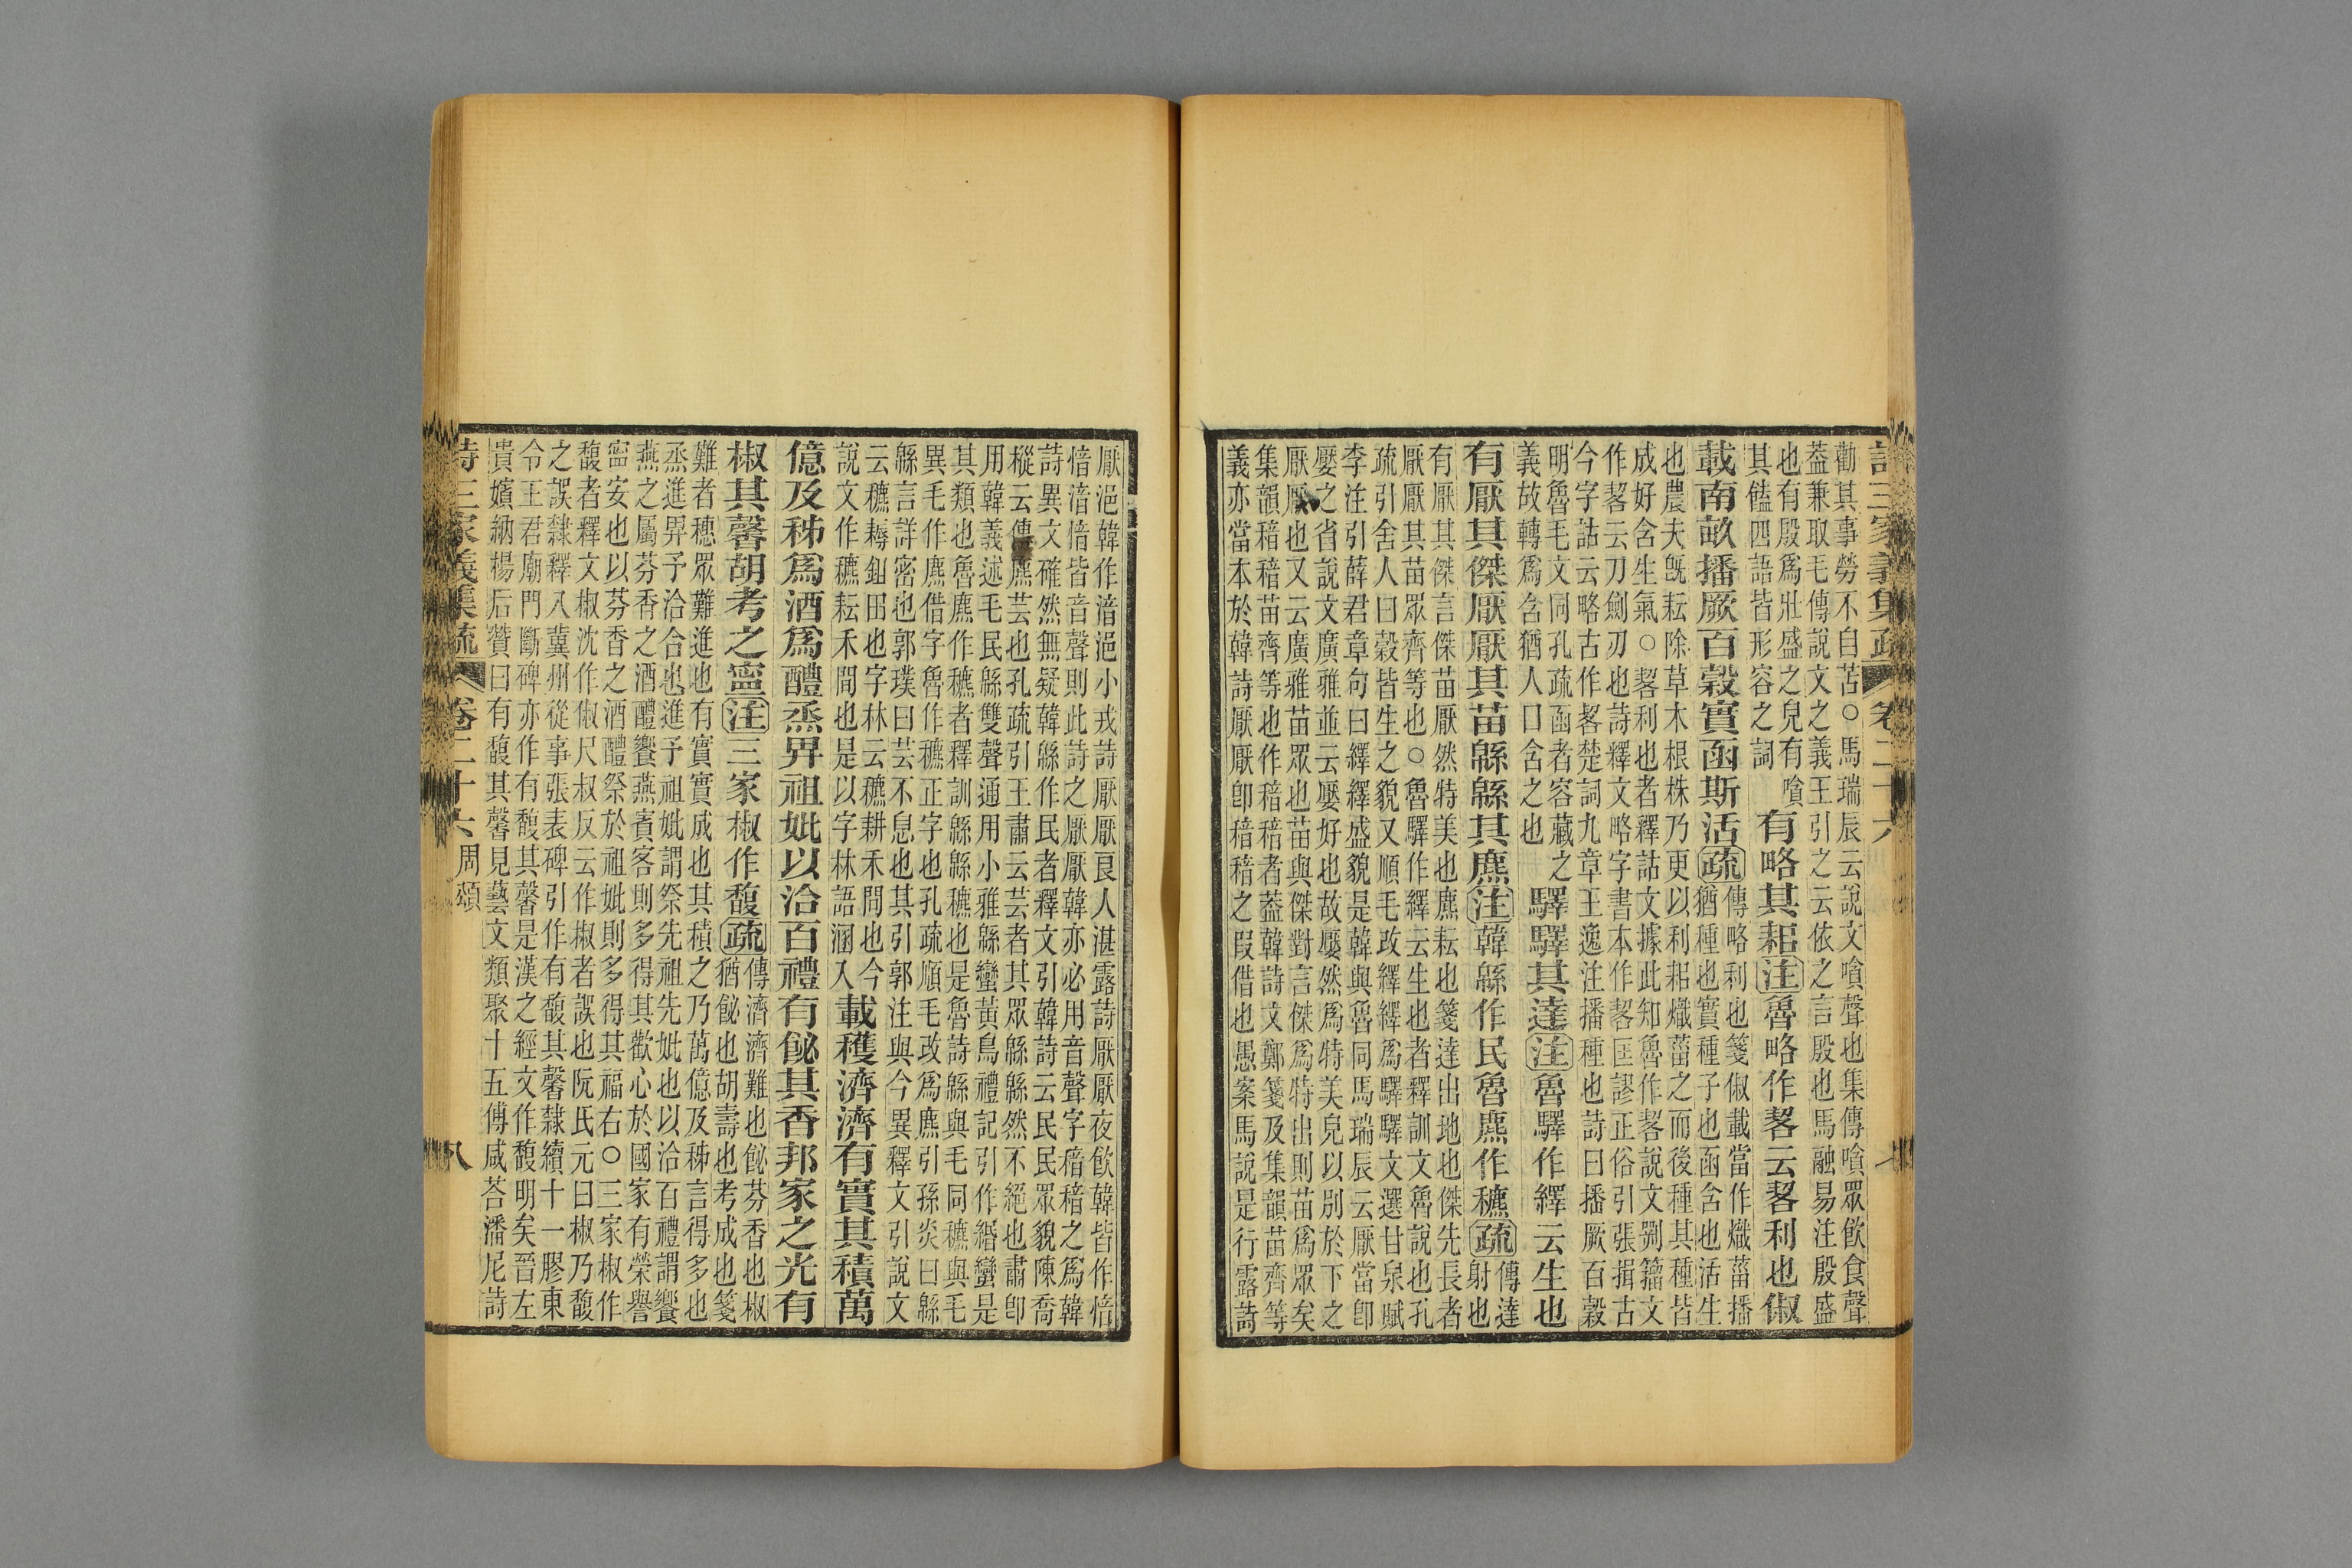 詩三家義集疏 卷二十六 七
勸其事勞不自苦○馬瑞辰云說文嗿聲也集傳嗿眾飲食聲
葢兼取毛傳說文之義王引之云依之言殷也馬融易注殷盛
也有殷爲壯盛之皃有嗿
其饁四語皆形容之詞
有略其耜注魯略作䂮云䂮利也俶
載南畝播厥百穀實函斯活疏
傳略利也箋俶載當作熾菑播
猶種也實種子也函含也活生
也農夫旣耘除草木根株乃更以利耜熾菑之而後種其種皆
成好含生氣○䂮利也者釋詁文據此知魯作䂮說文剠籀文
作䂮云刀劍刃也詩釋文略字書本作䂮匡謬正俗引張揖古
今字詁云略古作䂮楚詞九章王逸注播種也詩曰播厥百穀
明魯毛文同孔疏函者容藏之
義故轉爲含猶人口含之也
驛驛其達注魯驛作繹云生也
有厭其傑厭厭其苗緜緜其麃注韓緜作民魯麃作穮疏
傳達
射也
有厭其傑言傑苗厭然特美也麃耘也箋達出地也傑先長者
厭厭其苗眾齊等也○魯驛作繹云生也者釋訓文魯說也孔
疏引舍人曰穀皆生之貌又順毛改繹繹爲驛驛文選甘泉賦
李注引薛君章句曰繹繹盛貌是韓與魯同馬瑞辰云厭當卽
嬮之省說文廣雅並云嬮好也故嬮然爲特美皃以別於下之
厭厭也又云廣雅苗眾也苗與傑對言傑爲特出則苗爲眾矣
集韻稖稖苗齊等也作稖稖者葢韓詩文鄭箋及集韻苗齊等
義亦當本於韓詩厭厭卽稖稖之叚借也愚案馬說是行露詩
厭浥韓作湆浥小戎詩厭厭良人湛露詩厭厭夜飲韓皆作愔
愔湆愔皆音聲則此詩之厭厭韓亦必用音聲字稖稖之爲韓
詩異文確然無疑韓緜作民者釋文引韓詩云民民眾貌陳喬
樅云傳麃芸也孔疏引王肅云芸者其眾緜緜然不絕也肅卽
用韓義述毛民緜雙聲通用小雅緜蠻黃鳥禮記引作緡蠻是
其類也魯麃作穮者釋訓緜緜穮也是魯詩緜與毛同穮與毛
異毛作麃借字魯作穮正字也孔疏順毛改爲麃引孫炎曰緜
緜言詳密也郭璞曰芸不息也其引郭注與今異釋文引說文
云穮耨鉏田也字林云穮耕禾閒也今
說文作穮耘禾閒也是以字林語溷入
載穫濟濟有實其積萬
億及秭爲酒爲醴烝畀祖妣以洽百禮有飶其香邦家之光有
椒其馨胡考之寧注三家椒作馥疏
傳濟濟難也飶芬香也椒
猶飶也胡壽也考成也箋
難者穗眾難進也有實實成也其積之乃萬億及秭言得多也
烝進畀予洽合也進予祖妣謂祭先祖先妣也以洽百禮謂饗
燕之屬芬香之酒醴饗燕賓客則多得其歡心於國家有榮譽
寧安也以芬香之酒醴祭於祖妣則多得其福右○三家椒作
馥者釋文椒沈作俶尺叔反云作椒者誤也阮氏元曰椒乃馥
之誤隸釋八冀州從事張表碑引作有馥其馨隸續十一膠東
令王君廟門斷碑亦作有馥其馨是漢之經文作馥明矣晉左
貴嬪納楊后贊曰有馥其馨見藝文類聚十五傅咸荅潘尼詩
詩三家義集疏 卷二十六 周頌 八